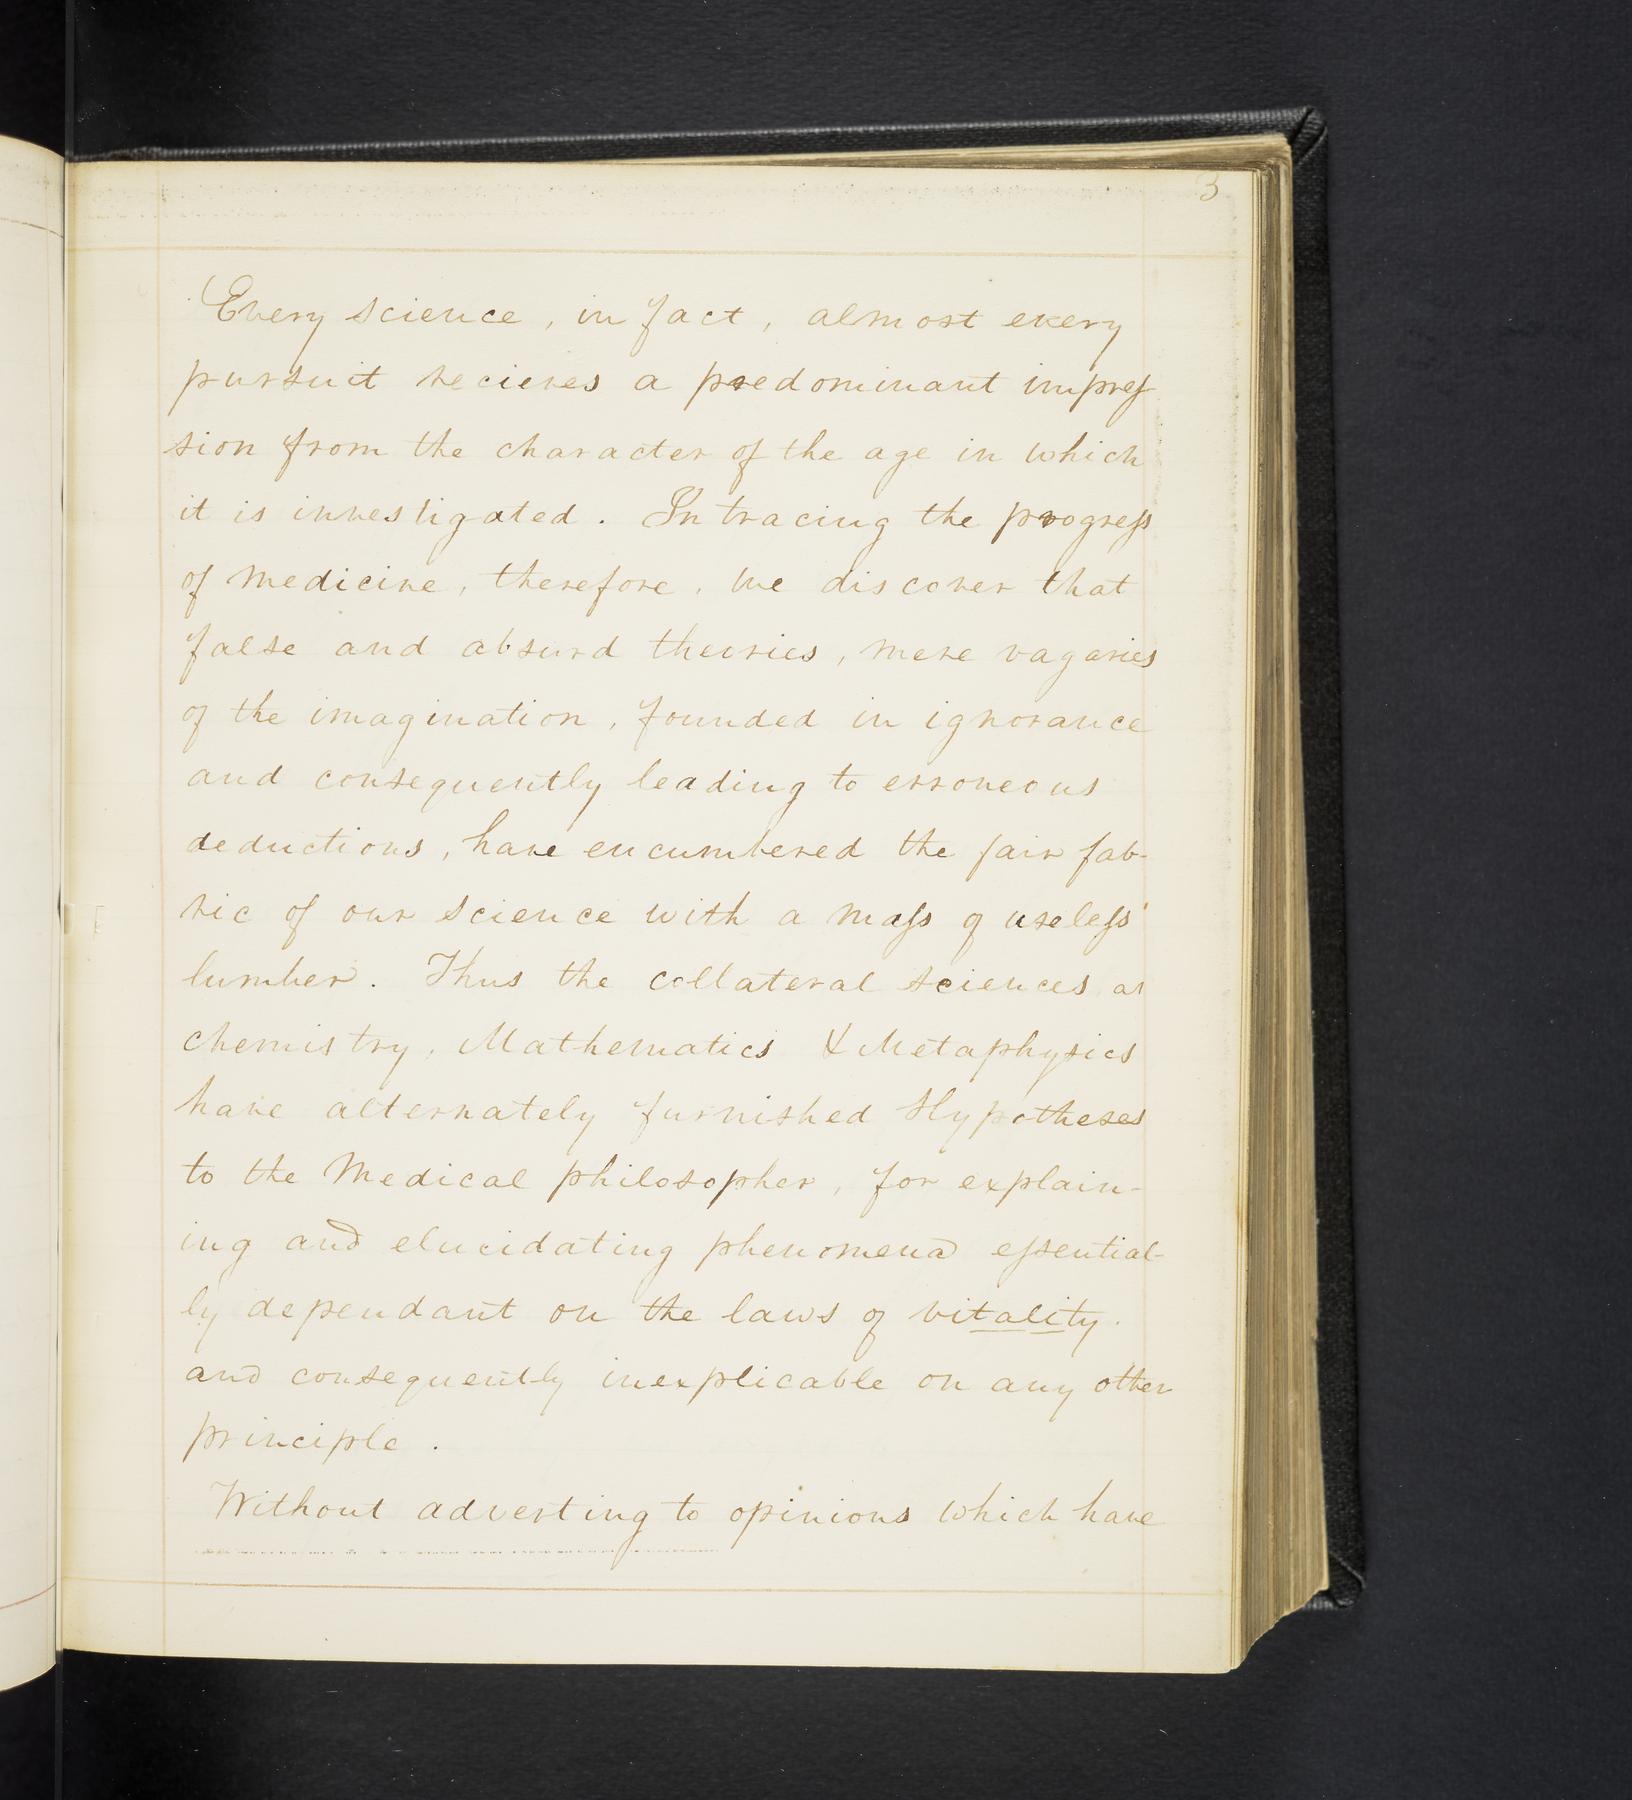 3
Every science, in fact, almost every
pursuit recieves a predominant impres
sion from the character of the age in which
it is investigated. In tracing the progress
of Medicine, therefore, we discover that
false and absurd theories, mere vagaries
of the imagination, founded in ignorance
and consequently leading to erroneous
deductions, have encumbered the fair fab-
ric of our science with a mass of useless
lumber. Thus the collateral sciences as
chemistry, Mathematics & Metaphysics
have alternately furnished Hypotheses
to the Medical philosopher, for explain-
ing and elucidating phenomena essential-
ly dependant on the laws of vitality.
and consequently inexplicable on any other
principle.
Without adverting to opinions which have